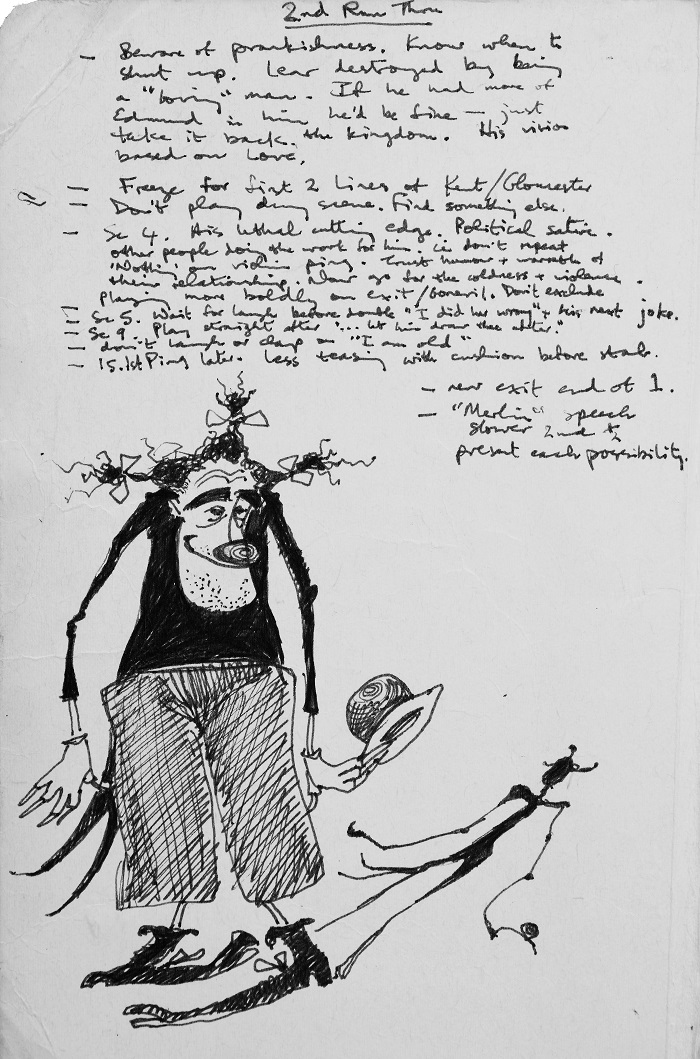 2nd Run Thru
- Beware of prankishness. Know when to
shut up. Lear destroyed by being
a "loving" man. If he had more of
Edmund in him he'd be fine — just
take it back. the kingdom. His vision
based on Love.
- Freeze for first 2 Lines of Kent/Gloucester
- Don't play dying scene. Find something else.
- Sc 4. His lethal cutting edge. Political satire.
other people doing the work for him. ie don't repeat
'Nothing' on violin ping. Trust humour + warmth of
their relationship. Now go for the coldness + violence.
Playing more boldly on exit/Goneril. Don't exclude
- Sc 5. Wait for laugh before double "I did her wrong" + his next joke.
- Sc 9. Play straight after "... let him draw the after."
- don't laugh or clap on "I am old"
- 15. 1st Ping later. Less teasing with cushion before stab.
- new exit end of 1.
- "Merlin" speech
slower 2nd ½
present each possibility.